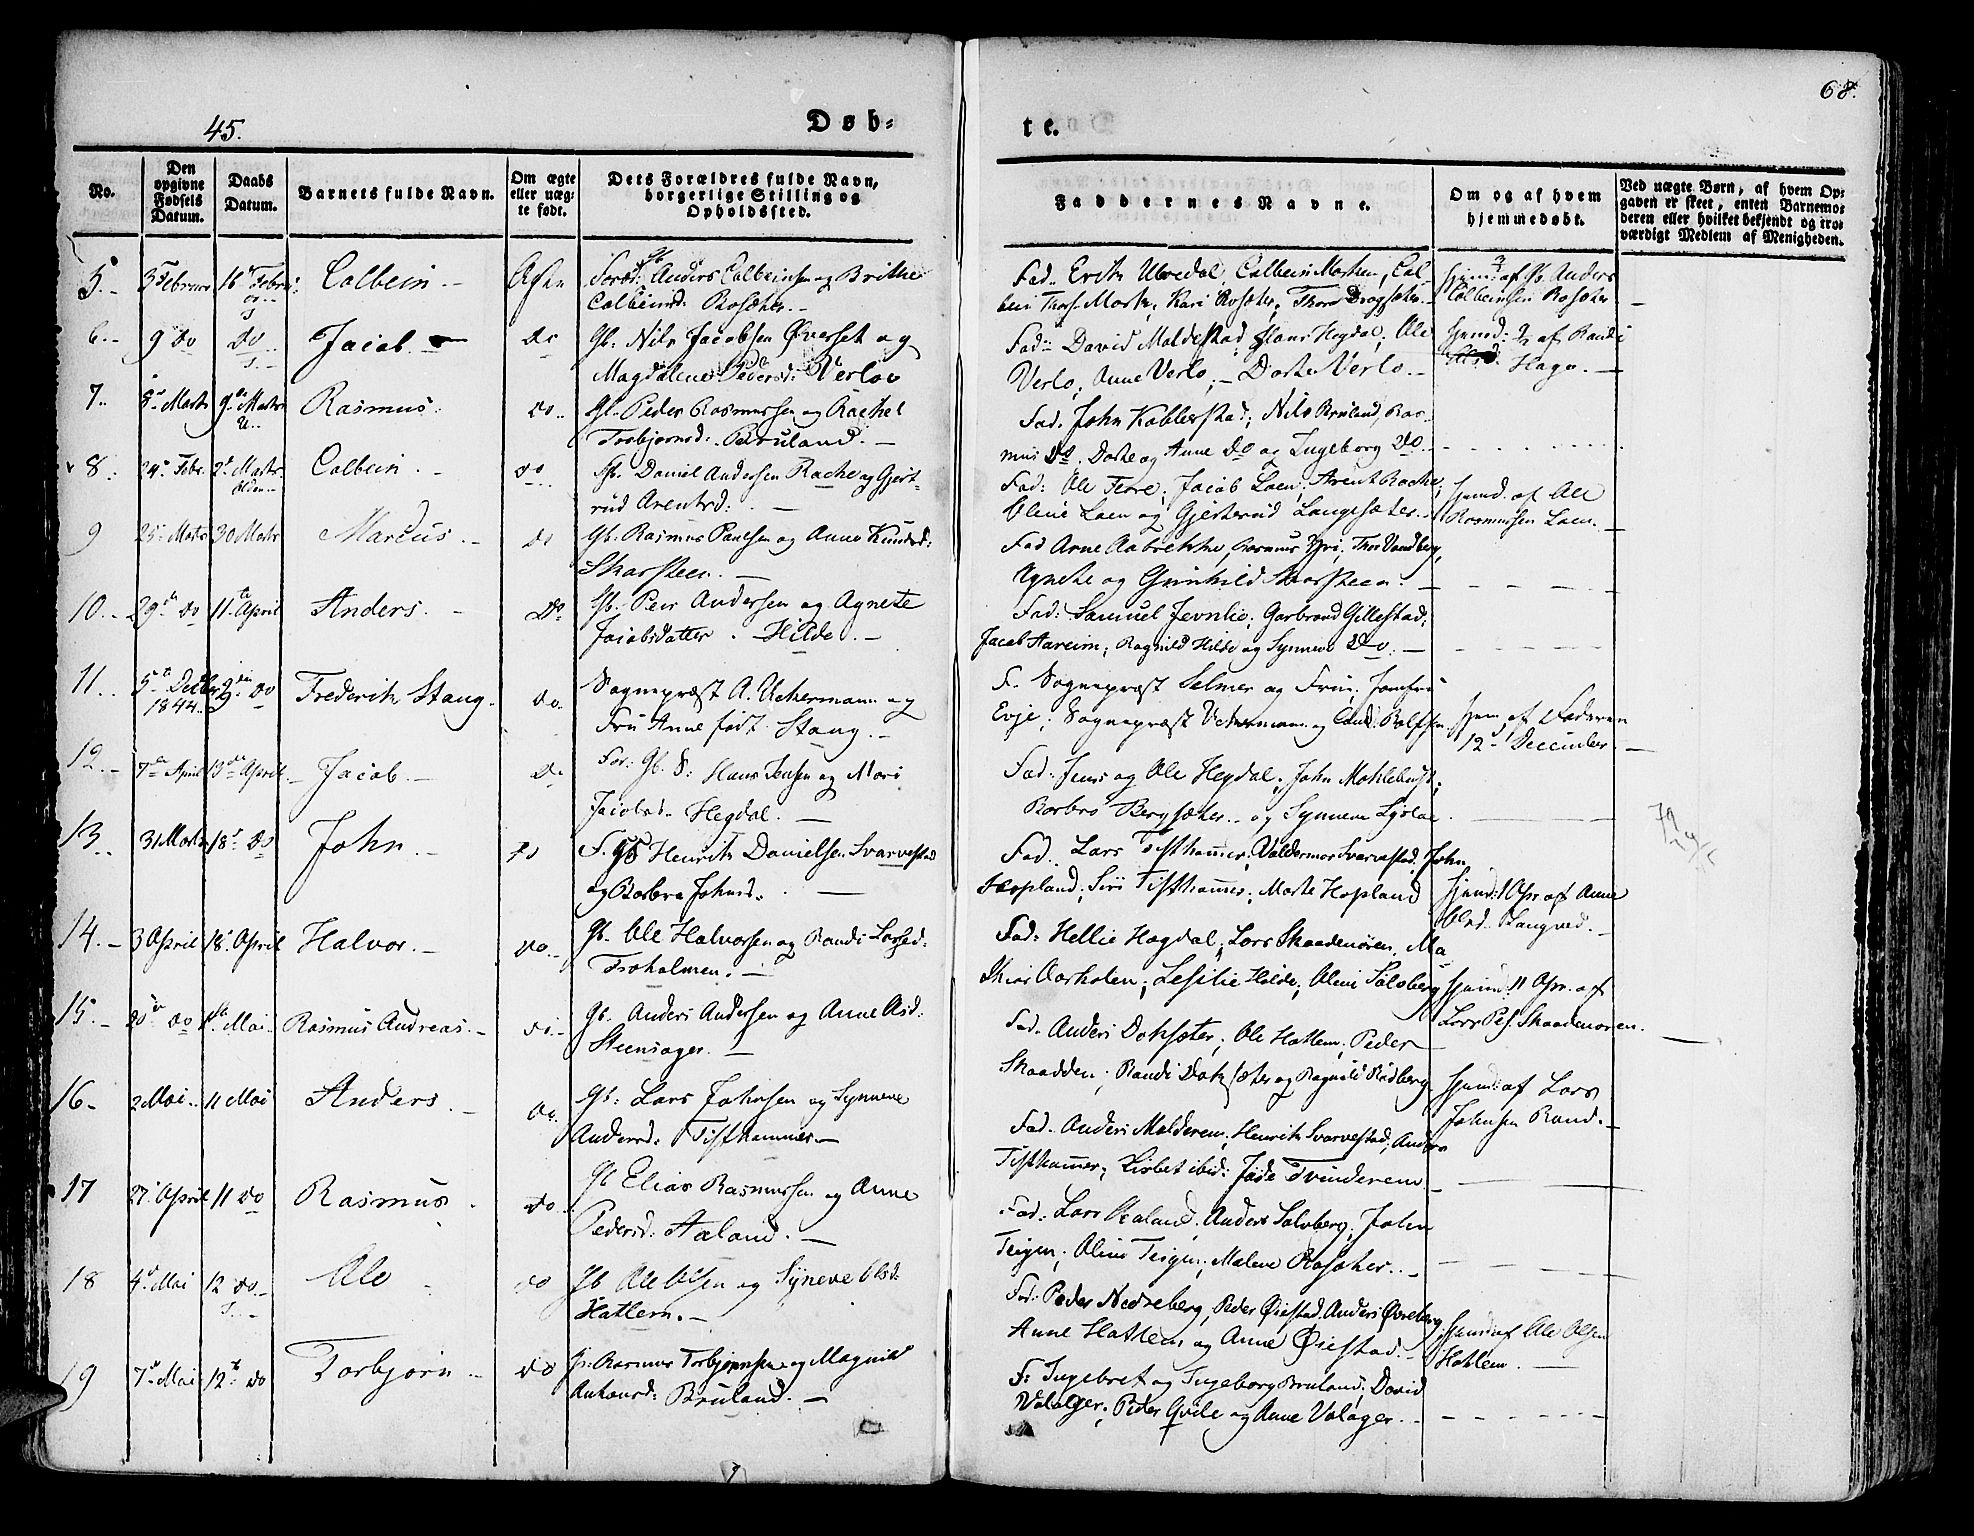 68.
45.
Døb-
te.
No.
Den opgivne Fødsels Datum.
Daabs Datum.
Barnets fulde Navn.
Om ægte eller uægte født.
Dets Forældres fulde Navn, borgerlige Stilling og Opholdssted.
Faddernes Navne.
Om og af hvem hjemmedøbt.
Ved uægte Børn, af hvem Opgaven er skeet, enten Barnemoderen eller hvilket bekjendt og troværdigt Medlem af Menigheden.
5. 3 Februar 16 Febru: Colbein. Anders Colbeinsen og Brithe
Colbeinsd: Rosæter.
Fad. Erik Ulvedal, Colbein Mosten, Col
bein Mork, Kari Rosæter,
af Anders
Colbeinsen Rosæter
6. 9 do do Jacob. do Gb. Nils Jacobsen Øverset og
Magdalene Pedersd: Verlo
Fad: David Moldestad, Hans Hegdal, Ole
Verlo, Anne Verlo, Dorte Verlo.
af Randi
Hage.
7. 8 Marts 9 Marts Rasmus. do. Gb. Peder Rasmussen og Rachel
Torbjørnsd: Bruland.
Fad. John Koblerstad, Nils Bruland, Ras-
mus do, Dorte og Anne do og Ingeborg do.
8. 24 Febr. 2 Marts Colbein. do Gb. Daniel Andersen Rache og Gjert-
rud Arentsd:
Fad: Ole Terre, Jacob Loen, Arent Rache,
Oline Loen og Gjertrud Langesæter.
Hjemd. af Ole
Rasmussen Loen.
9 25 Marts 30 Marts Marcus. do Gb. Rasmus Poulsen og Anne Knudsd:
Skarsteen.
Fad Arne Aabrekke, Rasmus Yri, Thor Sandberg,
Agnete og Gunhild Skarsteen.
10. 29 do 11 April Anders. do. Gb. Peer Andersen og Agnete
Jacobsdatter. Hilde.
Fad: Samuel Jevnlie, Garbrand Gillestad,
Jacob Aareim, Ragnild Hilde og Synneve do.
11. 5 Decbr 1844. 9 do Frederik Stang. do. Sognepræst A. Uckermann og
Frue Anne født Stang.
F. Sognepræst Selmer og Frue, Jomfru
Evje, Sognepræst Uckermann og Cand: Rolfsen
Hjem: af Faderen
12 December.
12. 7 April 13 April Jacob. do Gb. Hans Jensen og Mari
Jacobsd. Hegdal.
Fad: Jens og Ole Hegdal, John
Barbro Bergsæter og Synneve
13. 31 Marts 18 do John. do Henrik Danielsen Svarvestad
og Barbra Johnsd.
Fad. Lars Tisthammer, Valdemar Svarvestad, John
Hopland, Siri Tisthammer, Marte Hopland
Hjemd: 1 Apr. af Anne
Olsd. Langved.
14. 3 April 18 April Halvor. do. Gb. Ole Halvorsen og Randi Larsed:
Froholmen.
Fad: Hellie Hogdal, Lars Skaadenøren, Ma
thias Aarholen, Hilde, Oline Solsberg
Hjemd: 11 Apr. af
Lars Skaadenøren.
15. do 1 Mai. Rasmus Andreas. Gb. Anders Andersen og Anne Asd.
Steensager.
Fad. Anders Doksæter, Ole Hatlem, Peder
Skaadden, Randi Doksæter og Ragnild Rødberg
Hjemd: af Lars
Johnsen Rand.
16. 2 Mai. 11 Mai Anders. do. Gb: Lars Johnsen og Synneve
Andersd: Tisthammer.
Fad. Anders Melderem, Henrik Svarvestad, Anders
Tisthammer, Lisbet ibid: Tvinderem
17 27 April 11 do Rasmus. do. Gb Elias Rasmussen og Anne
Pedersd: Aaland.
Fad: Lars Aaland, Anders Solsberg, John
Teigen, Oline Teigen, Malene Rosæter.
18 4 Mai 12 do. Ole do Gb Ole Olsen og Synneve Olsd.
Hatlem.
Fad: Peder Nedreberg, Peder Øiestad, Anders Øvreberg,
Anne Hatlem og Anne Øiestad.
Hjemd af Ole Olsen
Hatlem.
19 7 Mai 12 do Torbjørn. do Gb. Rasmus Torbjørnsen og Magnild
Antonsd: Bruland.
F: Ingebret og Ingeborg Bruland, David
Valager, Peder Qvile og Anne Valager.